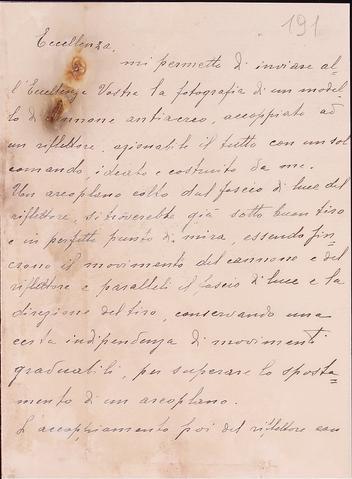 191
Eccellenza.
mi permetto di inviare al-
l'Eccellenza Vostra la fotografia di un model-
lo di cannone antiaereo, accoppiato ad
un riflettore, azionabile il tutto con un sol
comando, ideato e costruito da me.
Un areoplano colto dal fascio di luce del
riflettore, si troverebbe già sotto buon tiro
e in perfetto punto di mira, essendo sin-
crono il movimento del cannone e del
riflettore e paralleli il fascio di luce e la
direzione del tiro, conservando una
certa indipendenza di movimenti
graduabili, per superare lo sposta=
mento di un areoplano.
L'accoppiamento poi del riflettore con